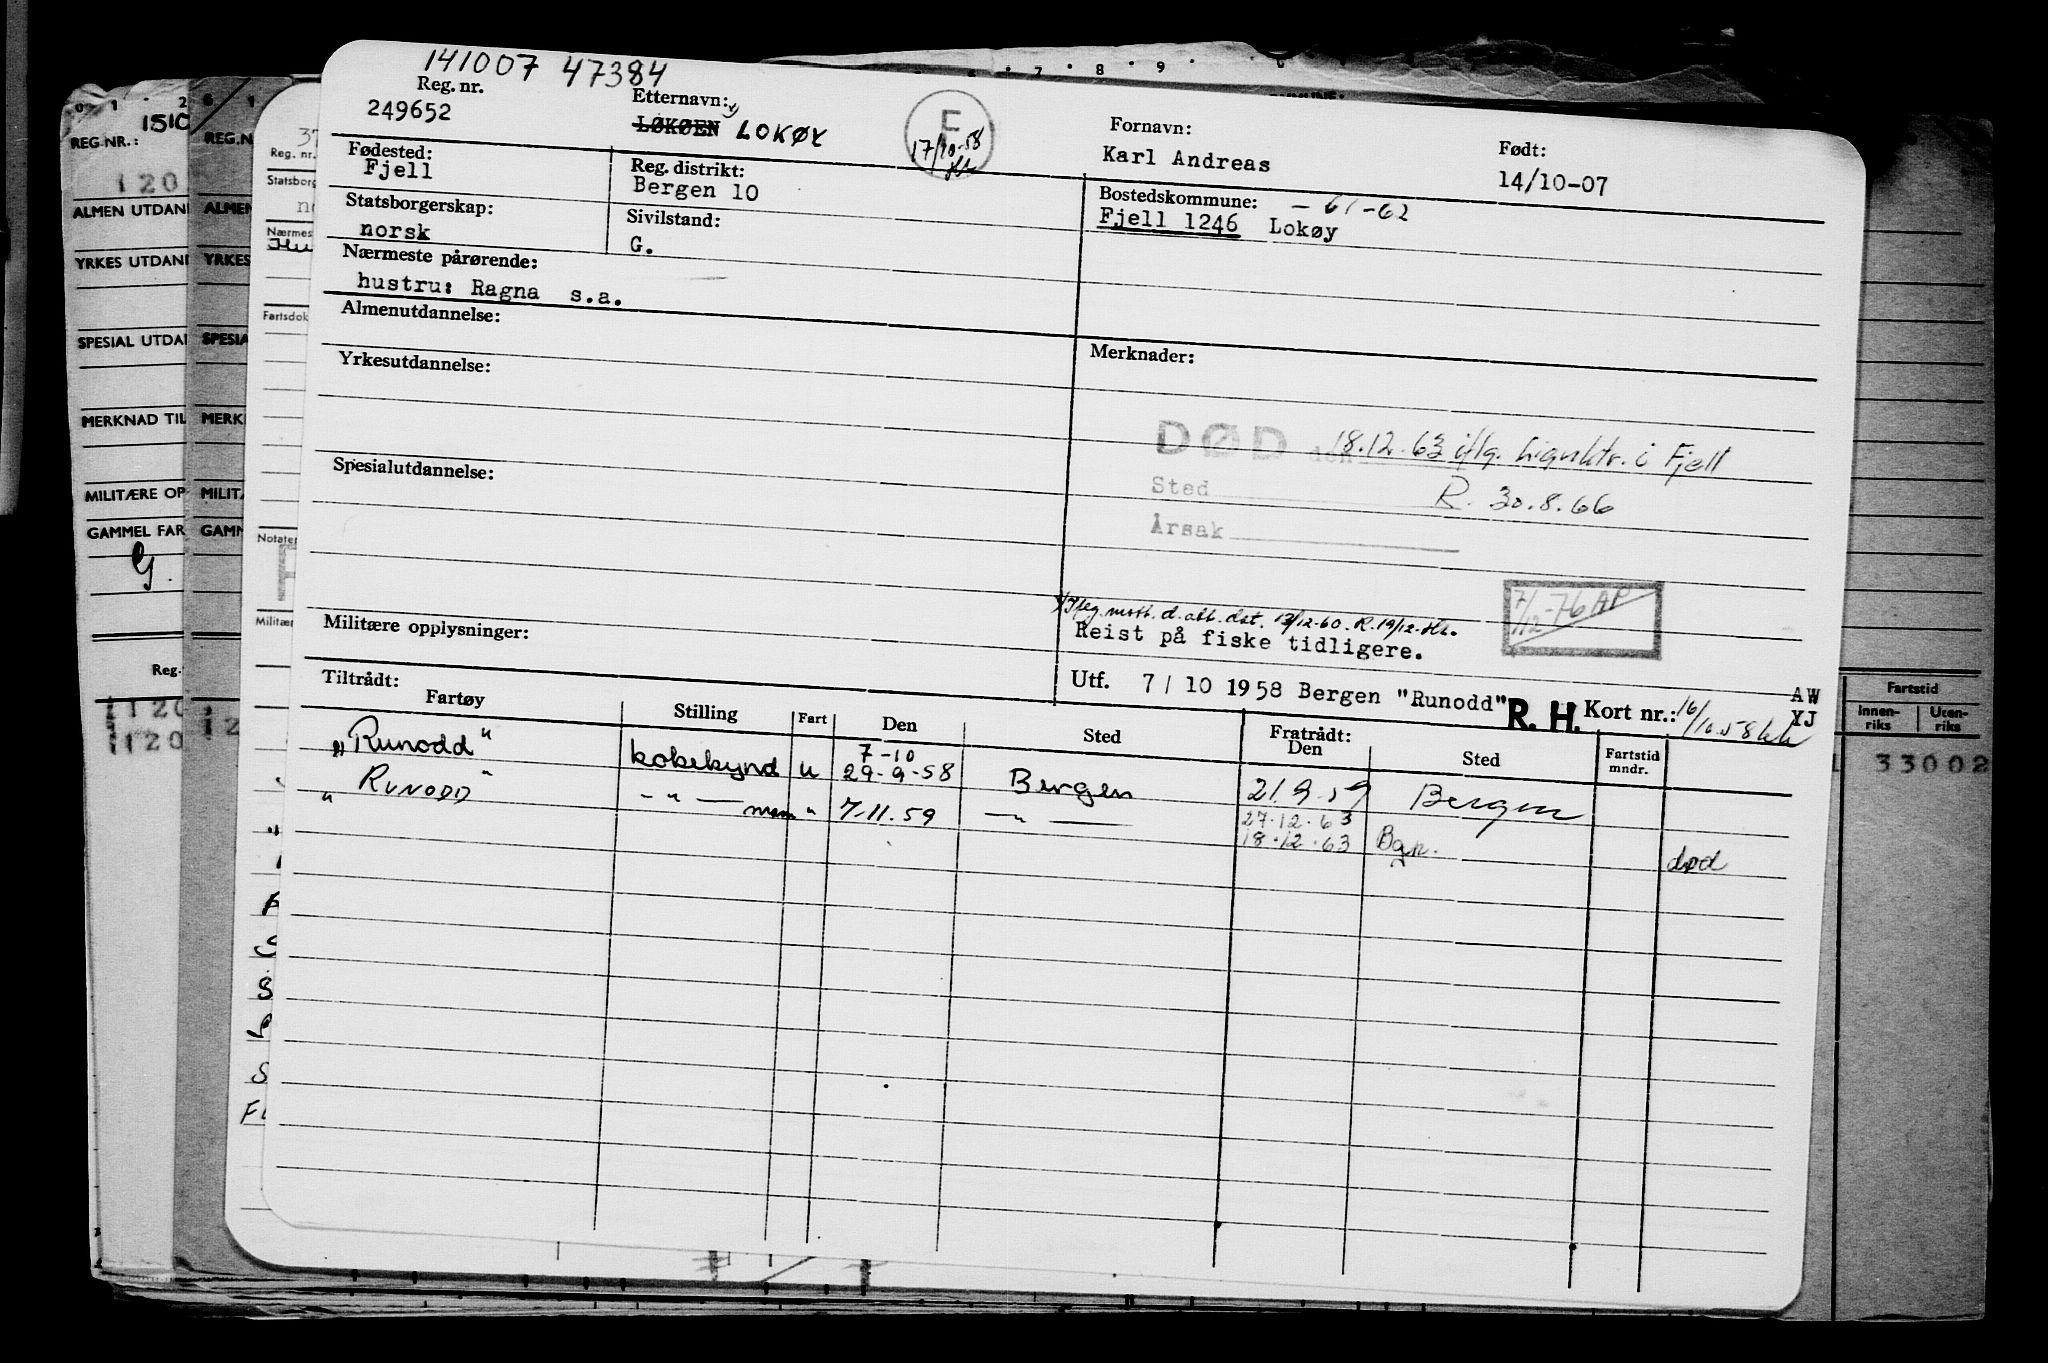 141007 47384
Reg. nr.
249652
Etternavn: x)
LØKØEN LOKØY
E
17/10-58
Fornavn:
Karl Andreas
Født:
14/10-07
Fødested:
Fjell
Reg. distrikt:
Bergen 10
Bostedskommune: – 61-62
Fjell 1246 Lokøy
Statsborgerskap:
norsk
Sivilstand:
G.
Nærmeste pårørende:
hustru: Ragna s.a.
Almenutdannelse:
Yrkesutdannelse:
Merknader:
DØD den 18.12.63 iflg. lignktr. i Fjell
Sted R. 30.8.66
Årsak
Spesialutdannelse:
7/12-76 AP
x) Iflg. mott. d. att. dat. 13/12-60. R. 19/12
Reist på fiske tidligere.
Militære opplysninger:
Utf. 7/10 1958 Bergen "Runodd" R. H. Kort nr.: 16/10.58
AW
YJ
Tiltrådt:
Fartøy Stilling Fart Den Sted Fratrådt: Den Sted Fartstid mndr.
"Runodd" kokekynd u 7-10 29-9-58 Bergen 21.9.59 Bergen
" RUNODD " – " – mann " 7.11.59 – " – 27.12.63
18.12.63 Bgn. død
REG.NR.: 1510
120
ALMEN UTDAN
YRKES UTDAN
SPESIAL UTDA
MERKNAD TIL
MILITÆRE OP
GAMMEL FAR
G.
Reg.
1120
1120
REG.N
ALMEN
YRKES
SPESIA
MERK
MILIT
GAMM
12
37
Reg. nr.
Statsborg
Nærmes
Fartsdok
Notater
Militær
Fartstid
Innen-riks Uten-riks
33002